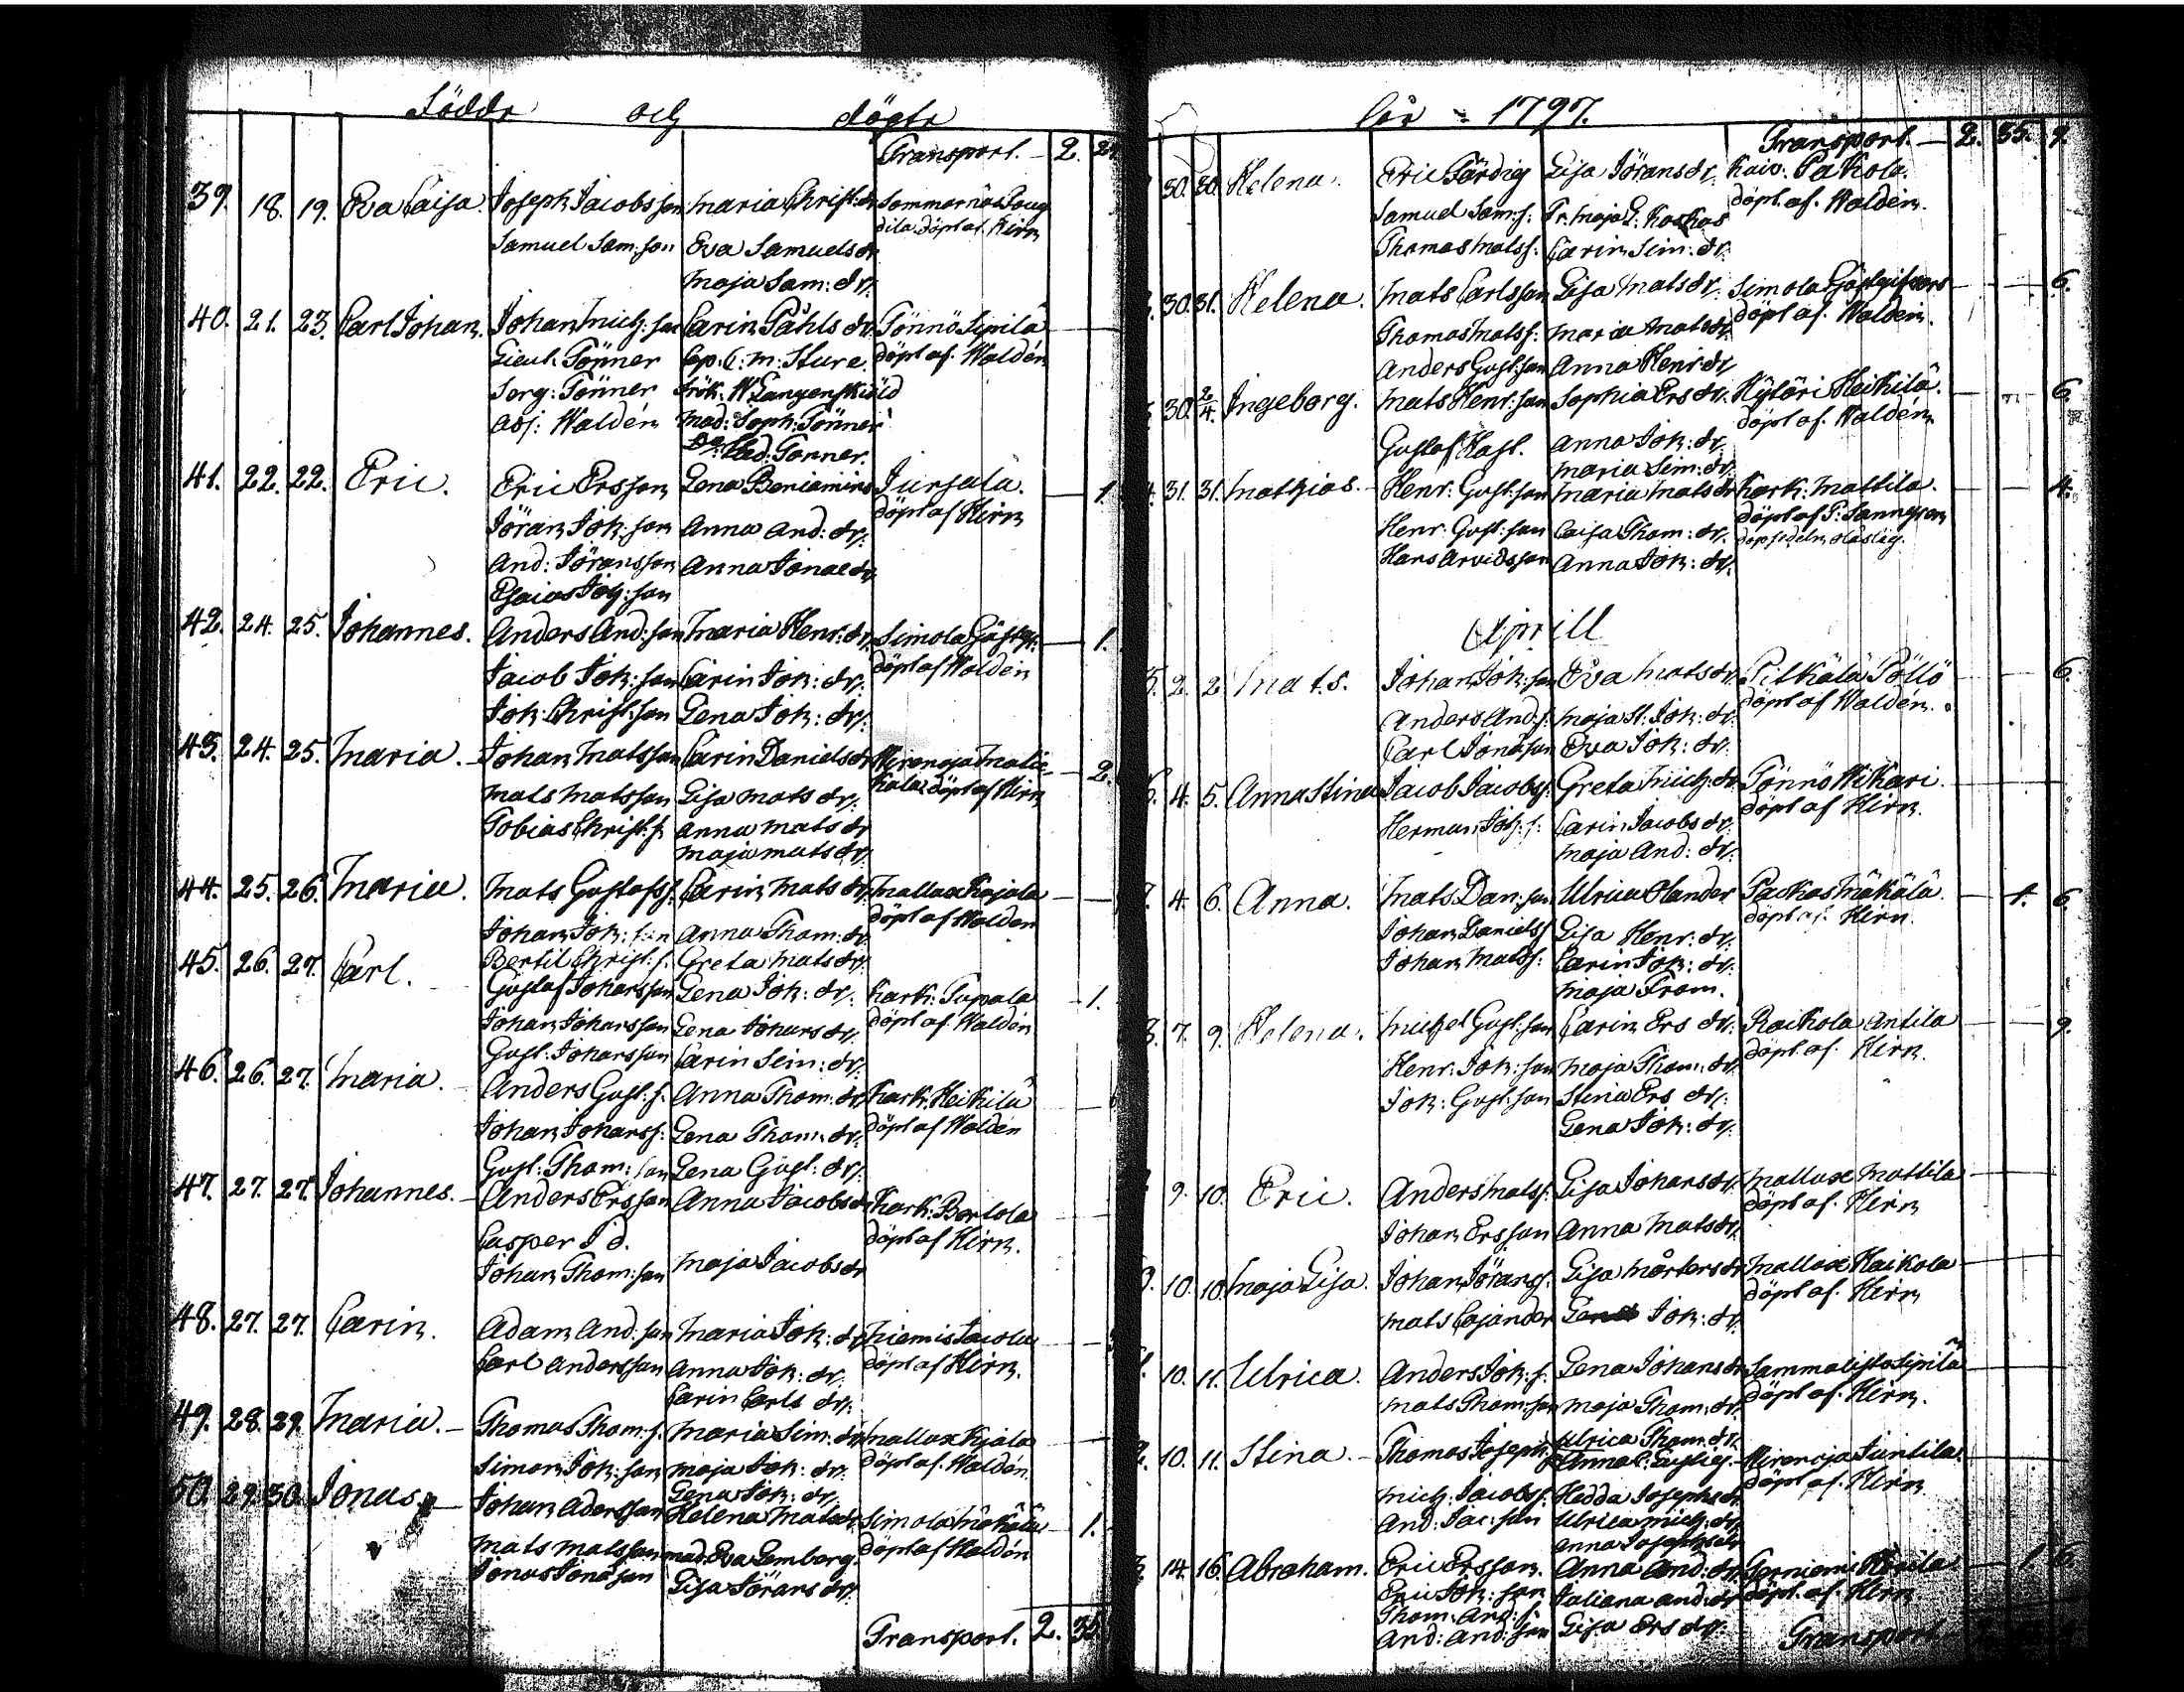 Födde och döpte
Transport. 2.
39. 18. 19. Eva Caisa. Joseph Jacobsson Maria Christ:dr. Sammarnås
Samuel Sam:son Eva Samuelsdr. döpt af Hirn
Maja Sam:dr.
40. 21. 23. Carl Johan. Johan Mich:son Carin Påhls dr. Tönnö Sipilä
Lieut. Tönner Cap. C. M. Sture. döpt af Waldén
Serg: Tönner Frök. W. Langenskiöld
Adj: Waldén Mad: Soph: Tönner
Do Hed: Tönner.
41. 22. 22. Eric. Eric Ersson Lena Beniamins Jursala. 1.
Jöran Joh:son Anna And:dr. döpt af Hirn
And: Jöransson Anna Jonae dr.
Esaias Joh:son
42. 24. 25. Johannes. Anders And:son Maria Henr:dr. Simola 1.
Jacob Joh:son Carin Joh:dr. döpt af Waldén
Joh: Christ:son Lena Joh:dr.
43. 24. 25. Maria. Johan Matsson Carin Daniels dr. Hirvenoja 2.
Mats Matsson Lisa Mats dr. döpt af Hirn
Tobias Christ:s. Anna Mats dr.
Maja Mats dr.
44. 25. 26. Maria. Mats Gustafss. Carin Mats dr. Mallax Kajala
Johan Joh:son Anna Thom:dr. döpt af Waldén
Bertil Christ:s. Greta Mats dr.
45. 26. 27. Carl. Gustaf Johansson Lena Joh:dr. Kark: Tupala 1.
Johan Johansson Lena Johans dr. döpt af Waldén
Gust: Johansson Carin Sim:dr.
46. 26. 27. Maria. Anders Gust:s. Anna Thom:dr. Kark: Heikilä
Johan Johanss: Lena Thom:dr. döpt af Waldén
Gust: Thom:son Lena Gust:dr.
47. 27. 27. Johannes. Anders Ersson Anna Jacobs dr. Kark: Bertola
Casper döpt af Hirn.
Johan Thom:son Maja Jacobs dr.
48. 27. 27. Carin. Adam And:son Maria Joh:dr. Niemis Jacola
Carl Andersson Anna Joh:dr. döpt af Hirn.
Carin Carls dr.
49. 28. 29. Maria. Thomas Thom:s. Maria Sim:dr. Mallax
Simon Joh:son Maja Joh:dr. döpt af Waldén
Lena Joh:dr.
50. 29. 30. Jonas. Johan Adersson Helena Mats dr. Simola 1.
Mats Matsson Mad. Eva Lemberg. döpt af Waldén
Jonas Jonasson Lisa Jörans dr.
Transport. 2. 35.
År 1797.
Transport. 2. 35. 9.
30. 30. Helena. Eric Färdig Lisa Jörans dr. Kaiv. Pakola.
Samuel Sam:s. Fr. Maja L. Koskas döpt af. Waldén.
Thomas Matss. Carin Sim:dr.
30. 31. Helena. Mats Carlsson Lisa Mats dr. Simola 6.
Thomas Matss. Maria Mats dr. döpt af. Waldén.
Anders Gust:son Anna Henr:dr.
30. 2/4. Ingeborg. Mats Henr:son Sophia Ers dr. Kylöri Heikilä. 6.
Gustaf Hast. Anna Joh:dr. döpt af. Waldén
Maria Sim:dr.
31. 31. Mathias. Henr: Gust:son Maria Mats dr. Kark: Mattila. 4.
Henr: Gust:son Caisa Thom:dr. döpt af
Hans Arvidsson Anna Joh:dr.
Aprill
2. 2. Mats. Johan Joh:son Eva Mats dr. Pitkälä Pöllö 6.
Anders And:s. Maja St. Joh:dr. döpt af Waldén.
Carl Jonasson Eva Joh:dr.
4. 5. Anna Stina Jacob Jacobss. Greta Mich:dr. Tönnö Wikari.
Herman Joh:s. Carin Jacobs dr. döpt af Hirn.
Maja And:dr.
4. 6. Anna. Mats Dan:son Ulrica Olander Packas Mäkälä. 1. 6.
Johan Danielss. Lisa Henr:dr. döpt af. Hirn.
Johan Matss. Carin Joh:dr.
Maja From.
7. 9. Helena. Michel Gust:son Carin Ers dr. Raikola Antila 9.
Henr: Joh:son Maja Thom:dr. döpt af. Hirn.
Joh: Gust:son Stina Ers dr.
Lena Joh:dr.
9. 10. Eric. Anders Matss. Lisa Johans dr. Mallax Mattila
Johan Ersson Anna Mats dr. döpt af. Hirn
10. 10. Maja Lisa. Johan Jöranss. Lisa Mårtens dr. Mallax Kaikola
Mats Cajander Joh:dr. döpt af. Hirn
10. 11. Ulrica. Anders Joh:s. Lena Johans dr. Sammalisto Sipilä
Mats Thom:son Maja Thom:dr. döpt af. Hirn.
Ulrica Thom:dr.
10. 11. Stina. Thomas Josephs. Anna Hirvenoja Juntila.
Mich: Jacobss. Hedda Josephs dr. döpt af. Hirn
And: Jac:son Ulrica Mich:dr.
Anna Josephs dr.
14. 16. Abraham. Eric Ersson. Anna And:dr. 1. 6.
Eric Joh:son Juliana And:dr. döpt af. Hirn
Thom: And:s.
And: And:son Lisa Ers dr.
Transport